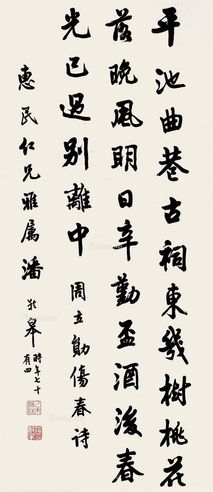 平池曲巷古祠東幾樹桃花
落晚風明日辛勤盃酒後春
光已過別離中周立勛傷春詩
惠民仁兄雅屬潘龄皋時年七十
有四